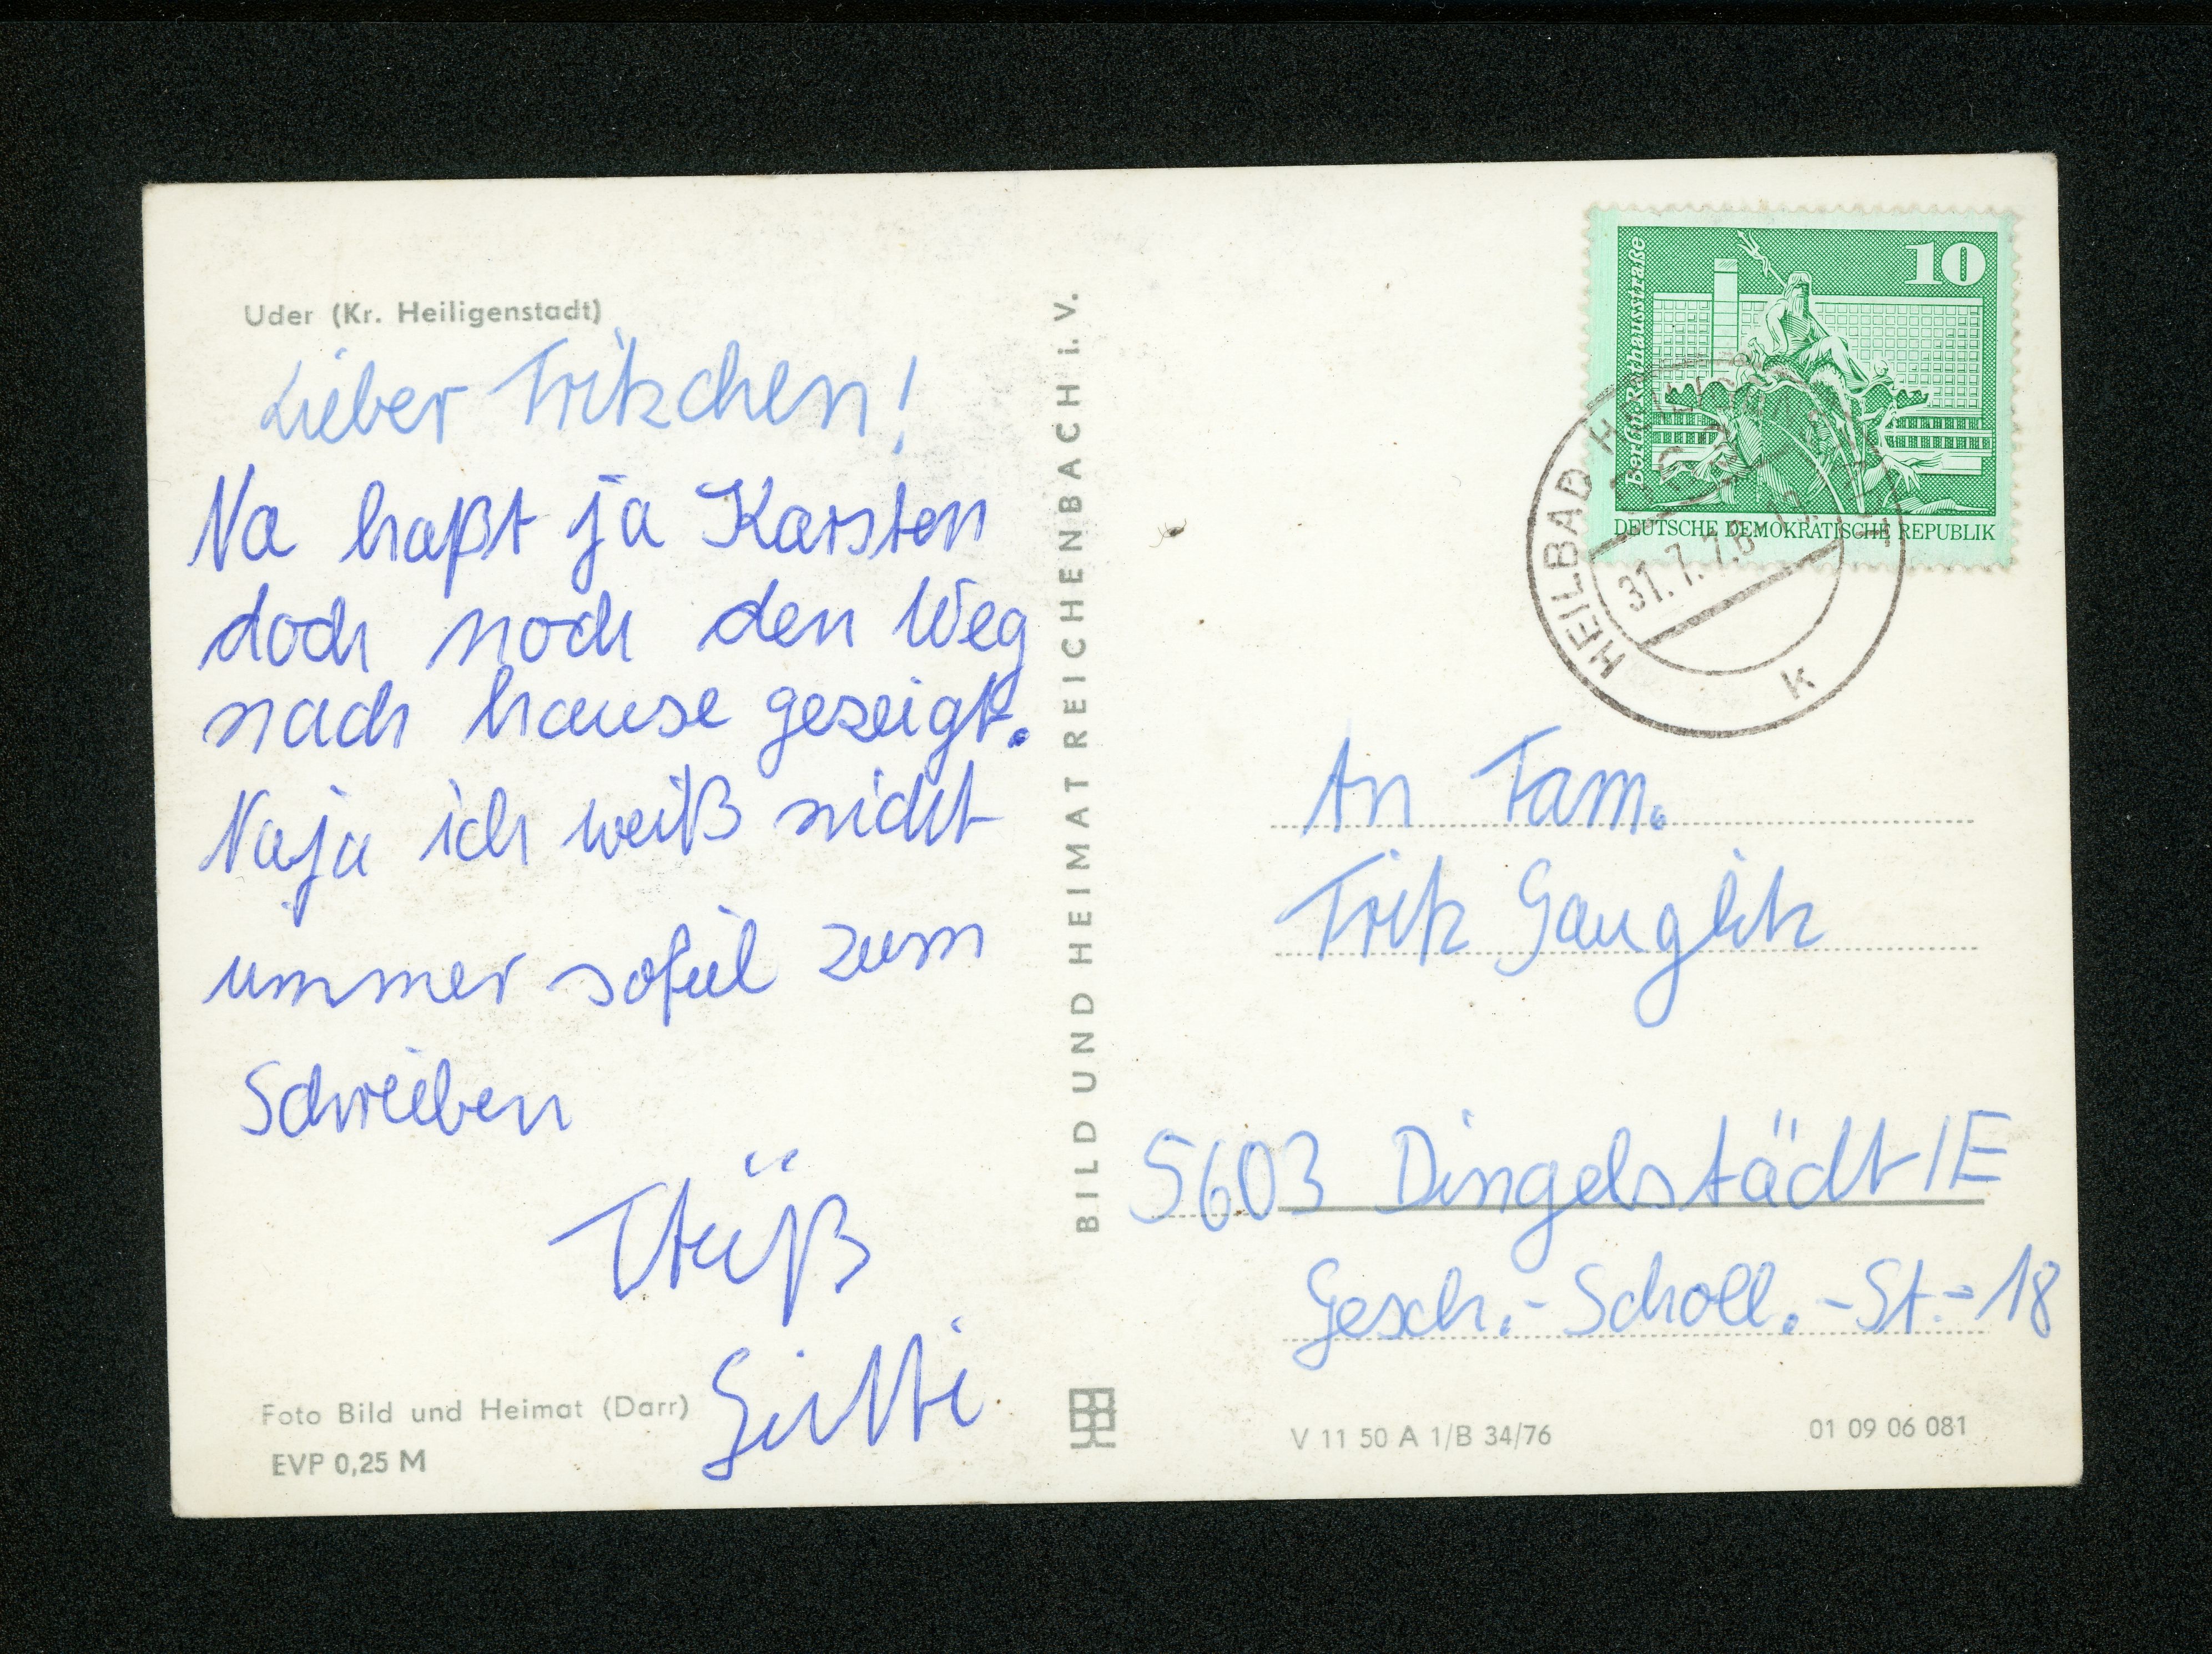 Uder (Kr. Heiligenstadt)
Lieber Fritzchen!
Na haßt ja Karsten
doch noch den Weg
nach hause gezeigt.
Naja ich weiß nicht
immer sofiel zum
Schreiben
Tschüß
Gitti
Foto Bild und Heimat (Darr)
EVP 0,25 M
BILD UND HEIMAT REICHENBACH i. V.
10
Berlin, Rathausstraße
DEUTSCHE DEMOKRATISCHE REPUBLIK
HEILBAD
31.7.76
k
An Fam.
Fritz
5603 Dingelstädt/E
Gesch.-Scholl.-St.-18
V 11 50 A 1/B 34/76
01 09 06 081